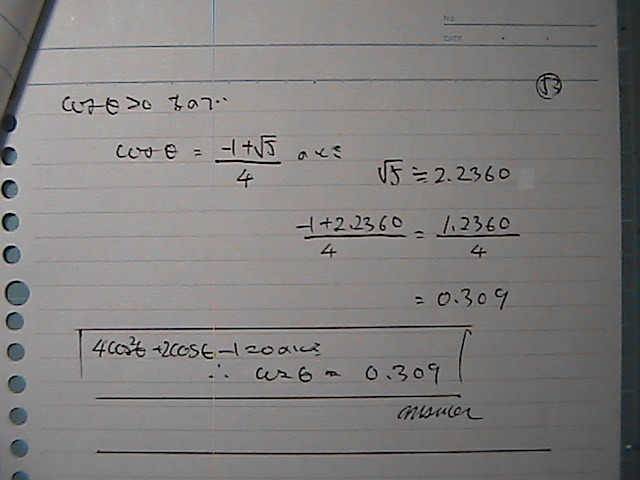 No.
DATE
53
cosθ>0 よりの‥
cosθ = (-1+√5)/4 のとき
√5 ≒ 2.2360
(-1+2.2360)/4 = 1.2360/4
= 0.309
4cos²θ+2cosθ-1=0のとき
∴ cosθ = 0.309
answer